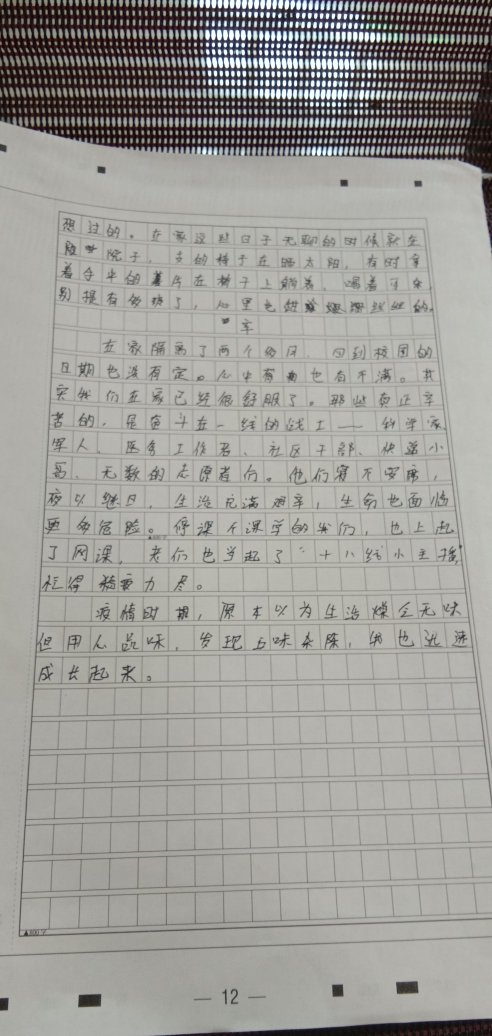 想过的。在家这些日子无聊的时候就在
院子,支的椅子在晒太阳,有时拿
着手中的薯片在椅子上躺着,喝着可乐
别提有多爽了,心里也甜丝丝的。
辛
在家隔离了两个多月,回到校园的
日期也没有定。心中有也有不满。其
实我们在家已经很舒服了。那些真正辛
苦的,是奋斗在一线的战士——科学家
军人、医务工作者、社区干部、快递小
哥、无数的志愿者们。他们寝不安席,
夜以继日,生活充满艰辛,生命也面临
更多危险。停课不停学的我们,也上起
▲600字
了网课,老们也当起了"十八线小主播"
忙得精疲力尽。
疫情时期,原本以为生活燥乏无味
但用心品味,发现五味杂陈,我也迅速
成长起来。
▲800字
— 12 —